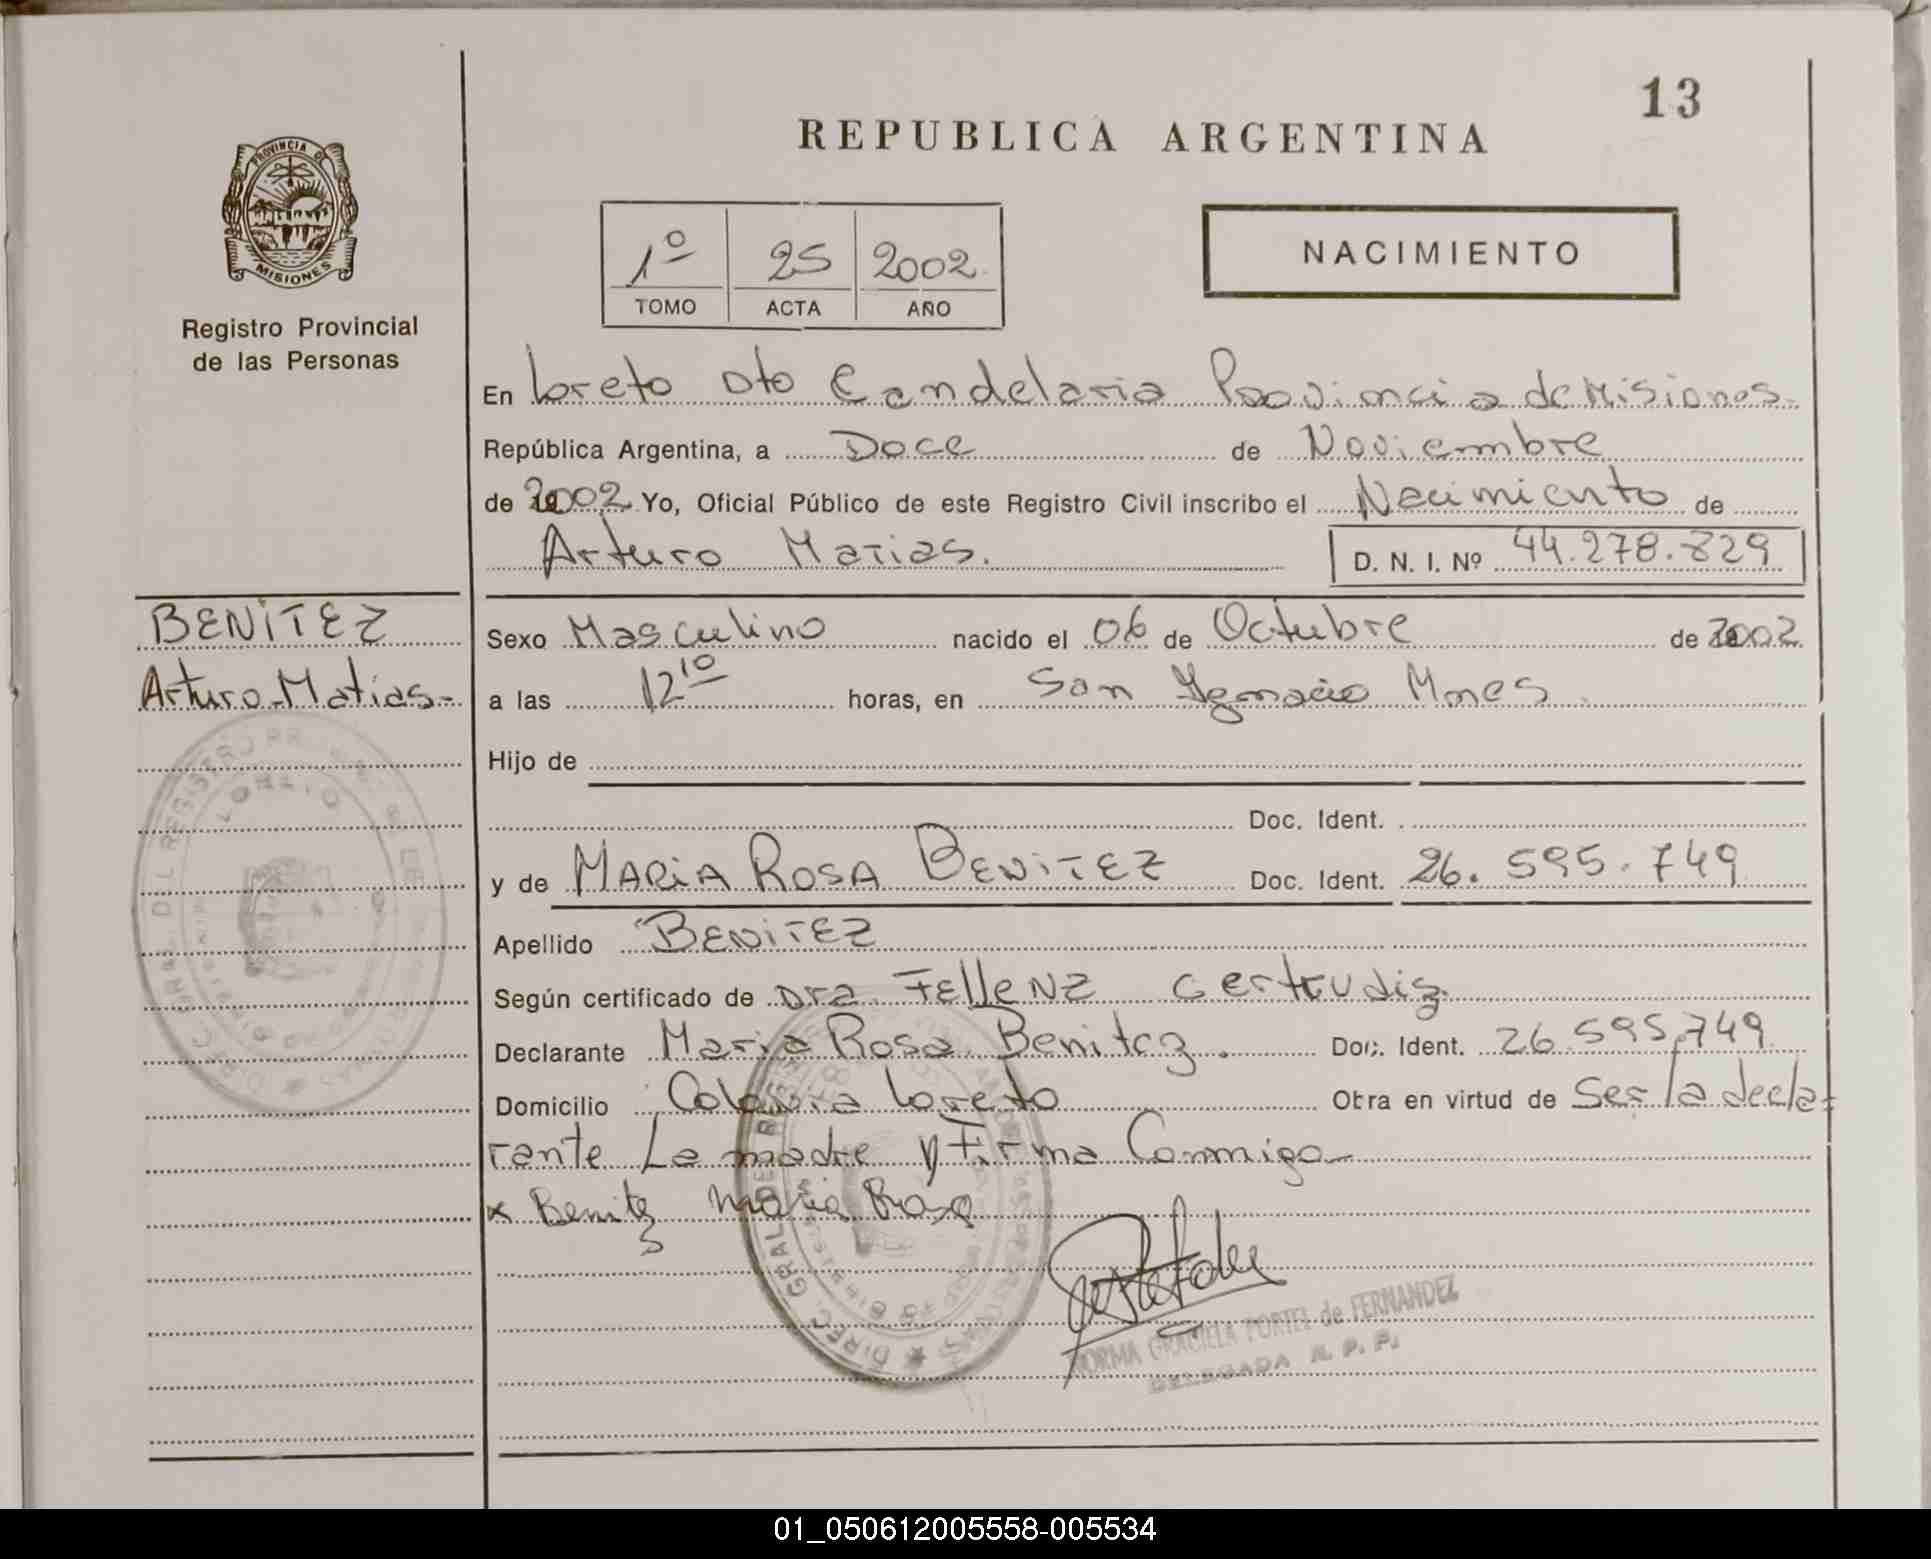 13
REPUBLICA ARGENTINA
PROVINCIA D
MISIONES
Registro Provincial
de las Personas
1º 25 2002
TOMO ACTA AÑO
NACIMIENTO
En Loreto Dto Candelaria Provincia de Misiones
República Argentina, a Doce de Noviembre
de 2002 Yo, Oficial Público de este Registro Civil inscribo el Nacimiento de
Arturo Matias. D. N. I. Nº 44.278.829
BENITEZ
Arturo Matias-
Sexo Masculino nacido el 06 de Octubre de 2002
a las 12 10 horas, en San Ygnacio Mnes
Hijo de
Doc. Ident.
y de MARIA ROSA BENITEZ Doc. Ident. 26.595.749
Apellido BENITEZ
Según certificado de Dra. FelleNZ Gertrudis
Declarante Maria Rosa Benitez. Doc. Ident. 26.595.749
Domicilio Colonia Loreto Obra en virtud de Ser la decla-
rante La madre y Firma Conmigo-
x Benitez Maria Rosa
NORMA GRACIELA PORTEL de FERNANDEZ
DELEGADA R. P. P.
01_050612005558-005534